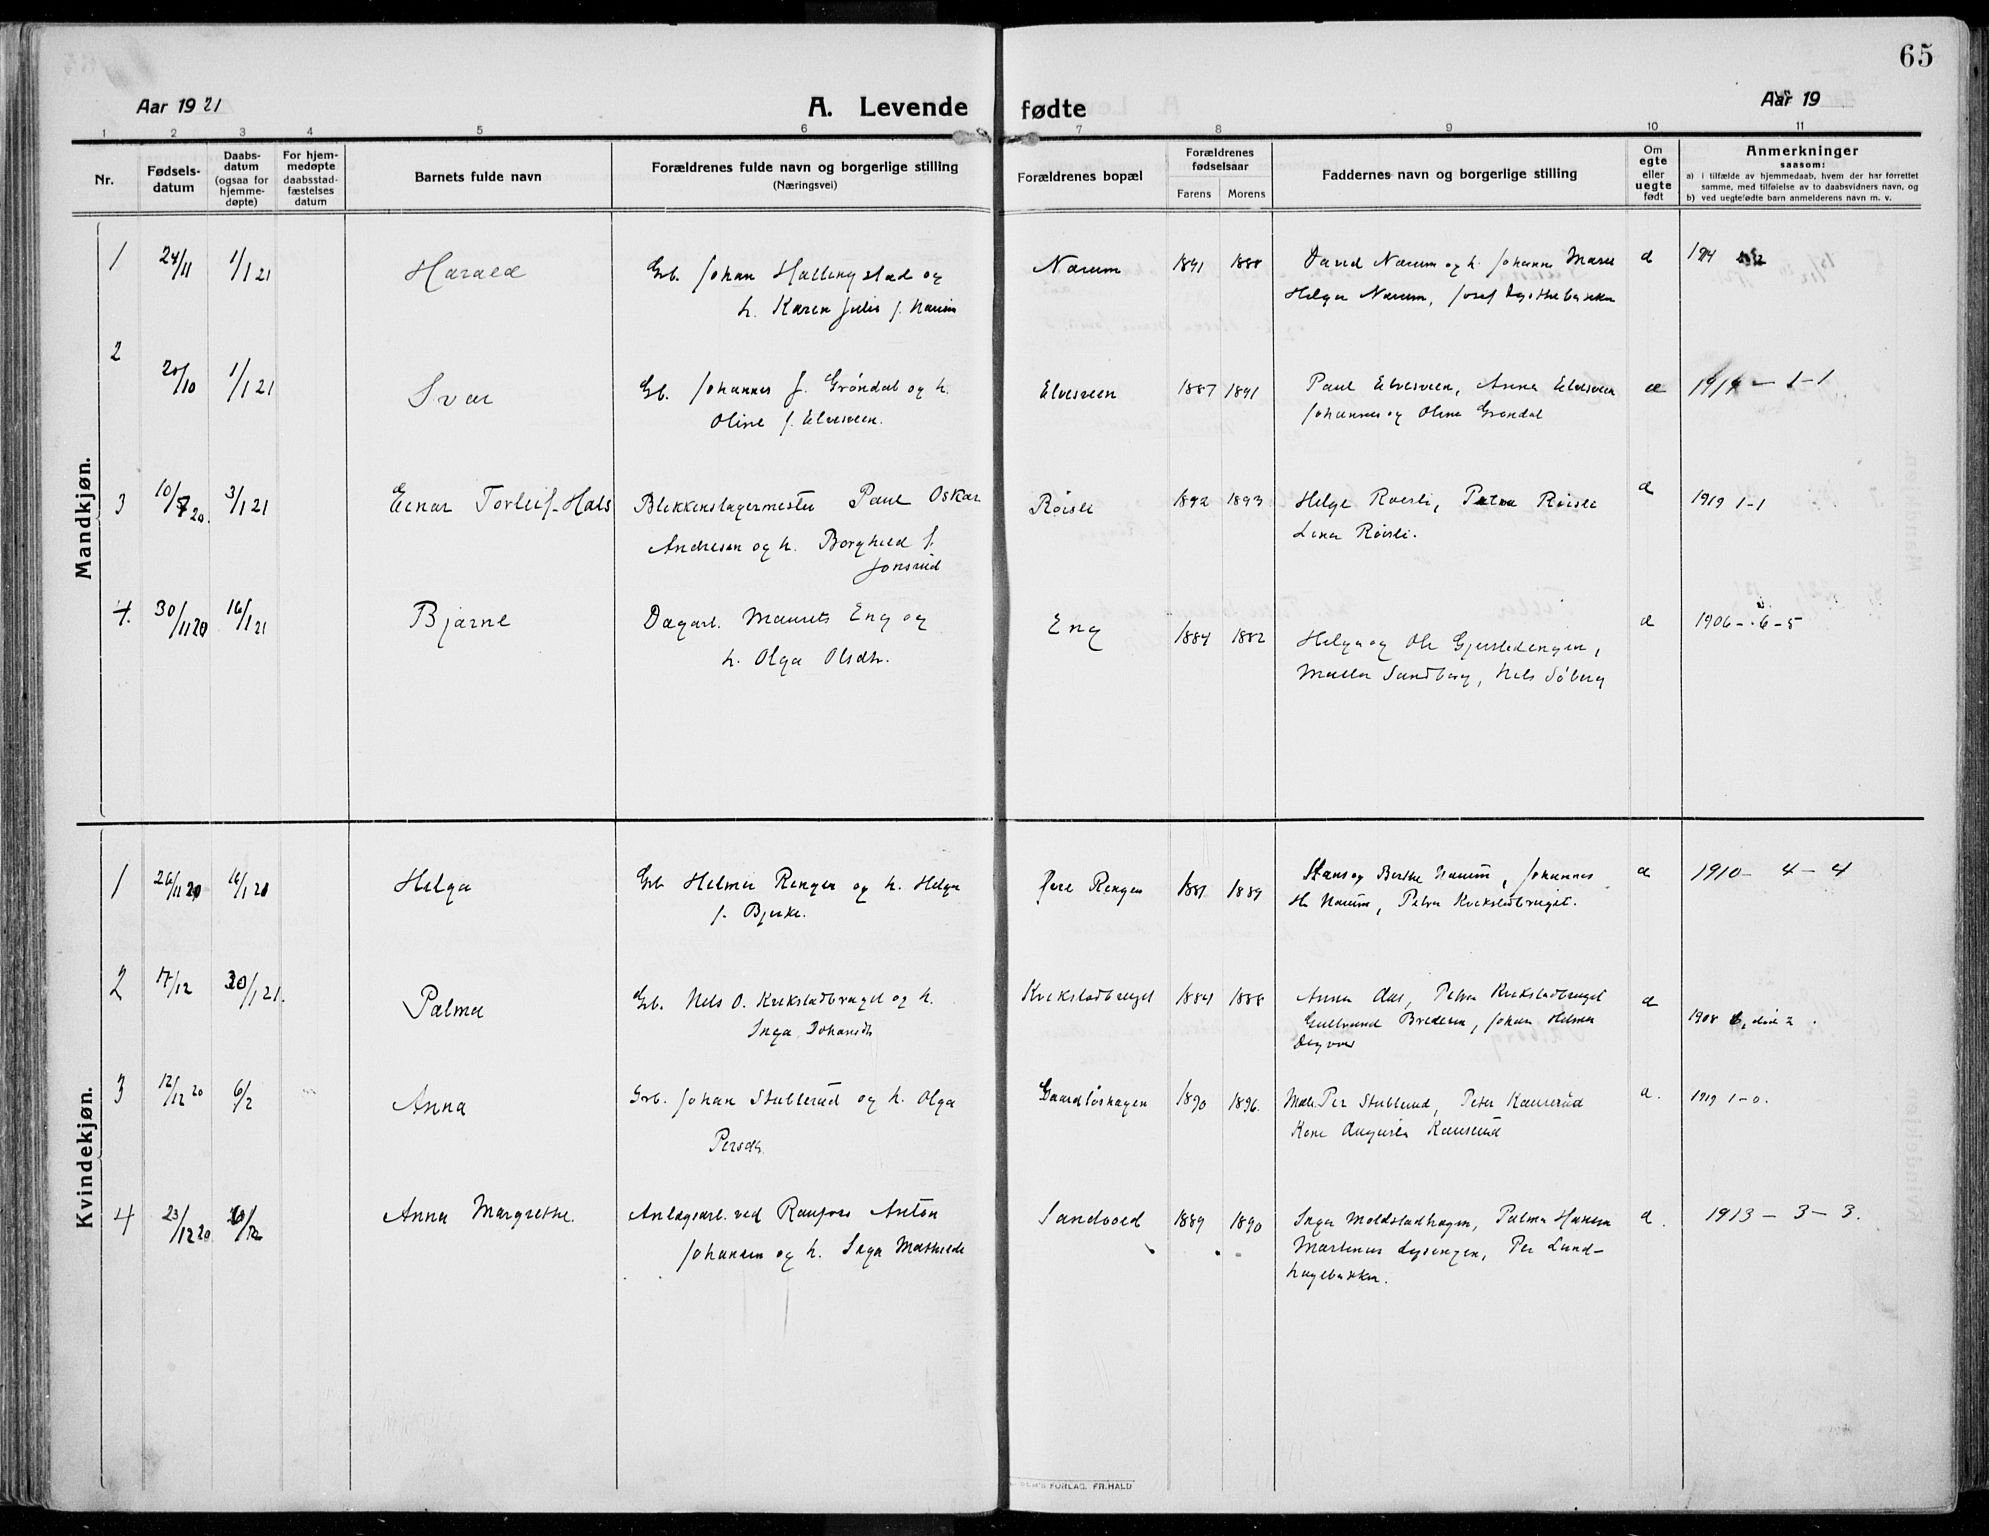 65
Aar 1921
A. Levende fødte
Aar 19
1 2 3 4 5 6 7 8 9 10 11
Nr.
Fødsels-
datum
Daabs-
datum
(ogsaa for
hjemme-
døpte)
For hjem-
medøpte
daabsstad-
fæstelses
datum
Barnets fulde navn
Forældrenes fulde navn og borgerlige stilling
(Næringsvei)
Forældrenes bopæl
Forældrenes
fødselsaar
Farens Morens
Faddernes navn og borgerlige stilling
Om
egte
eller
uegte
født
Anmerkninger
saasom:
a) i tilfælde av hjemmedaab, hvem der har forrettet
samme, med tilføielse av to daabsvidners navn, og
b) ved uegtefødte barn anmelderens navn m. v.
Mandkjøn.
1 24/11 1/1 21 Harald Grb. Johan Hallingstad og Narum 1891 1888 David Narum og h. Johanne Marie
h. Karen Julie f. Narum Helga Narum, Josef
2 20/10 1/1 21 Ivar Gb. Johannes J. Grøndal og h. Elvesveen 1887 1891 Paul Elvesveen, Anna Elvesveen æ 1914 - 1 - 1
Oline f. Elvesveen. Johannes og Oline Grøndal
3 10/7 20. 3/1 21 Einar Torleif Hals Blikkenslagermester Paul Oskar Røisli 1892 1893 Helge Røisli, Petra Røisli 1919 1-1
Andresen og h. Borghild f. Lina Røisli.
Jonsrud
4. 30/11 20 16/1 21 Bjarne Dagarb. Maurits Eng og Eng 1884 1882 1906 - 6 - 5
h. Olga Olsdtr. Helga og Ole Gjerstedengen,
Sandberg, Nils Søberg
Kvindekjøn.
1 26/11 20 16/1 20 Helga Grb Helmer Rengen og h. Helga Øvre Rengen 1881 1889 Hans og Berthe Narum, Johannes 1910 - 4 - 4
f. Bjerke. H. Narum, Petra Kvikstadbruget.
2 17/12 30/1 21. Palma Grb. Nils O. Kvikstadbruget og h. Kvikstadbruget 1884 1888 Anna Aas, Petra Kvikstadbruget
Inga Johansdtr Gullaund Bredesen, Johan Helmer 1908 6, død 2.
3 12/12 20 6/2 Anna Grb. Johan Stubberud og h. Olga Gaardløshagen 1890 1896. Per Stubberud, Peter Kauserud 1919 1-0.
Persdtr. Kone Augusta Kauserud
4 23/12 20 Anna Margrethe. Anlægsarb. ved Raufoss Anton Sandvold 1889 1890 Inga Moldstadhagen, Palma Hansen 1913 - 3 - 3.
Johansen og h. Inga Mathilde Martinus Lysengen, Per Lund-
hagebakken.
FORLAG. FR. HALD